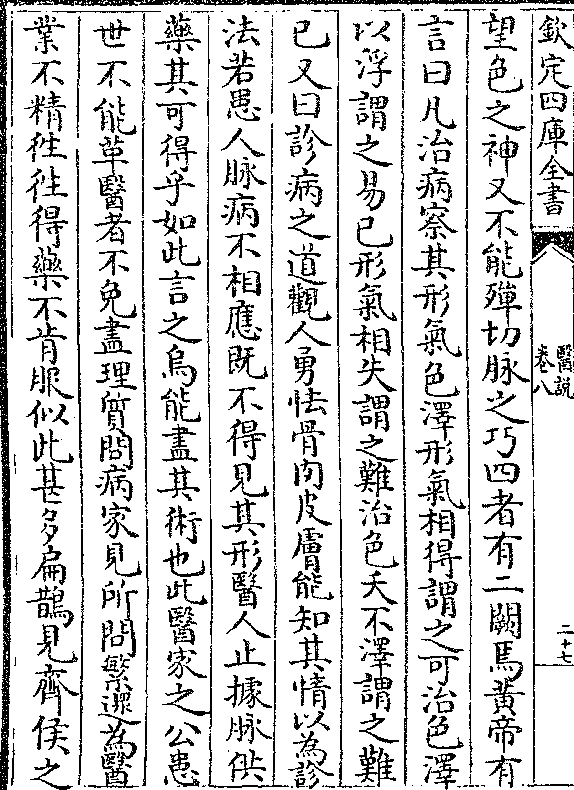 欽定四庫全書
醫說
卷八
二十七
望色之神又不能殫切脉之巧四者有二闕焉黄帝有
言曰凡治病察其形氣色澤形氣相得謂之可治色澤
以浮謂之易已形氣相失謂之難治色夭不澤謂之難
已又曰診病之道觀人勇怯骨肉皮膚能知其情以為診
法若患人脉病不相應既不得見其形醫人止據脉供
藥其可得乎如此言之烏能盡其術也此醫家之公患
世不能革醫者不免盡理質問病家見所問繁還為醫
業不精徃徃得藥不肯服似此甚多扁鵲見齊侯之